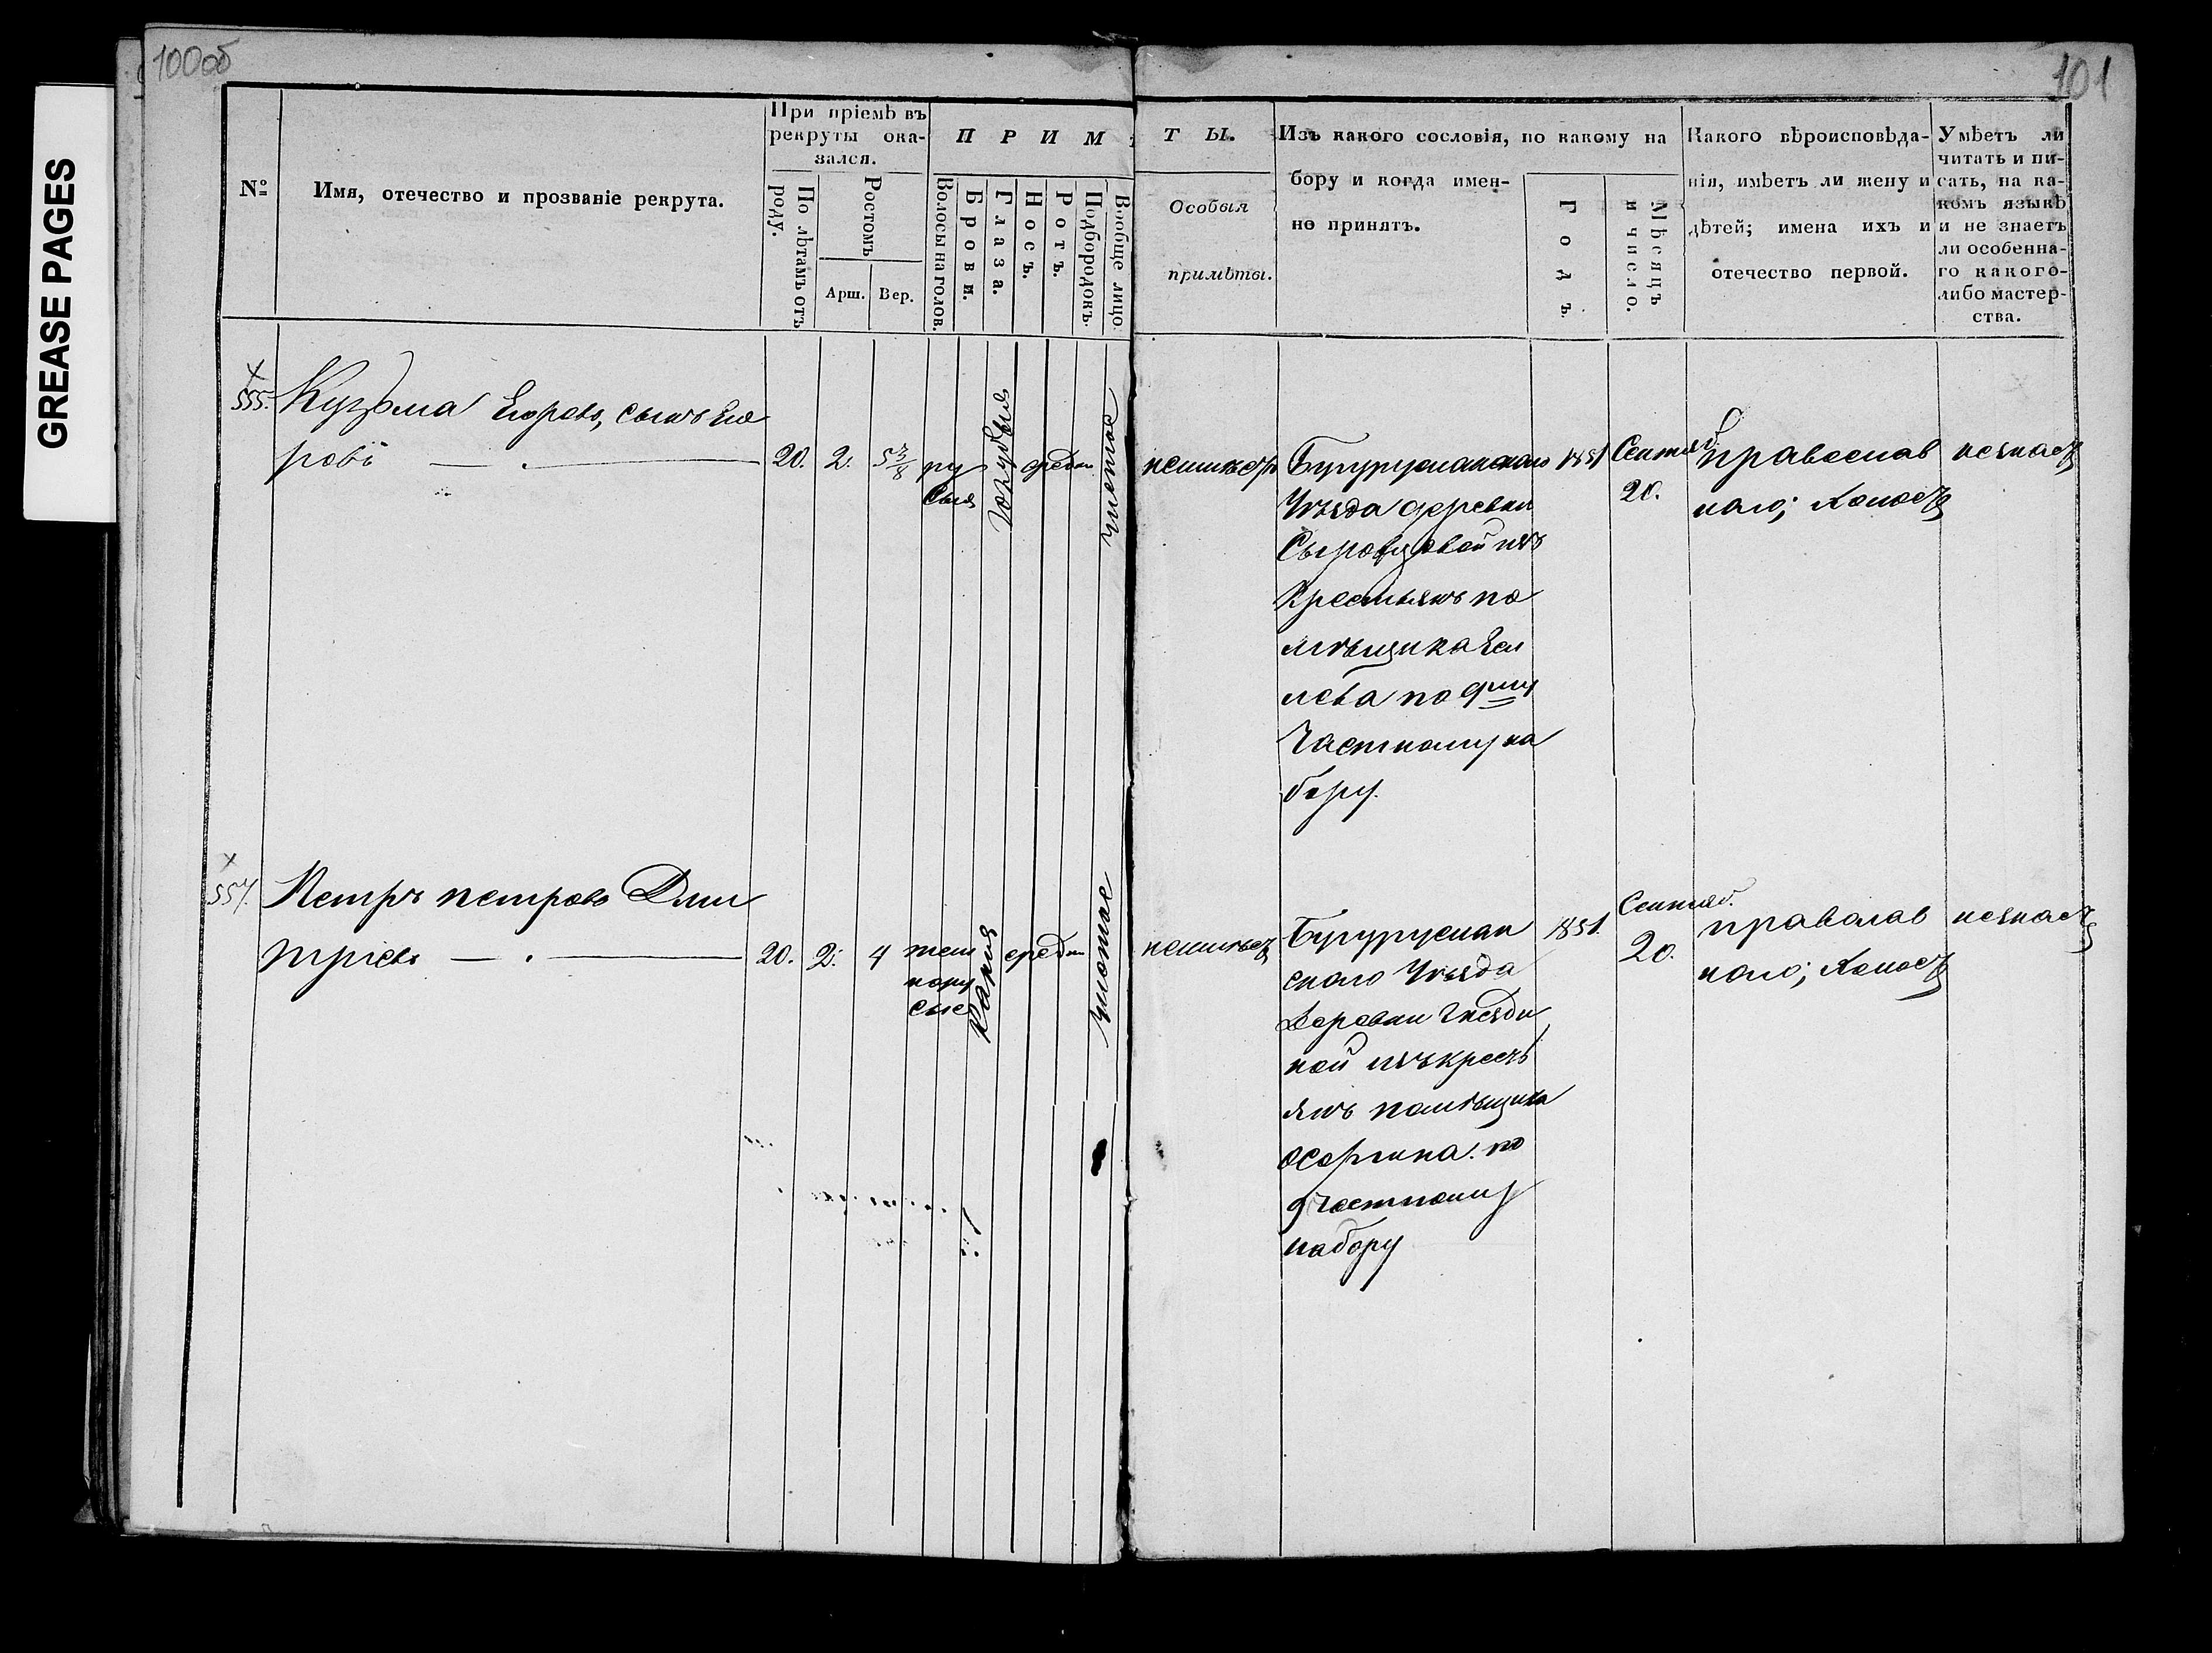 GREASE PAGES
100об
101
№
Имя, отечество и прозваніе рекрута.
При пріемѣ въ
рекруты ока-
зался.
По лѣтамъ отъ
роду.
Ростомъ
Арш.
Вер.
ПРИМ
Волосы на голов.
Брови.
Глаза.
Носъ.
Ротъ.
Подбородокъ
Вообще лицо
ТЫ.
Особыя
примѣты.
Изъ какого сословія, по какому на
бору и когда имен-
но принятъ.
Годъ.
Мѣсяцъ
и число.
Какого вѣроисповѣда-
нія, имѣетъ ли жену и
дѣтей; имена ихъ и
отечество первой.
Умѣетъ ли
читать и пи-
сать, на ка-
комъ языкѣ
и не знаетъ
ли особенна-
го какого-
либо мастер-
ства.
555.
Кузьма Егоровъ, сынъ Его
ровъ
20.
2.
5 3/8
ру
сыя
голубыя
средн
чистое
неимѣетъ
Бугурусланскаго
Уѣзда деревни
изъ
Крестьянъ по
мѣщика
по 9му
Частному на
бору.
1851
Сентяб
20.
православ
наго; Холостъ
незнаетъ
557.
Петръ петровъ Дми
тріевъ
20.
2.
4
тем
нору
сые
Карія
средн
чистое
неимѣетъ
Бугуруслан
скаго Уѣзда
Деревни Гнѣзди
ной изъ крестъ
янъ помѣщика
Осоргина. по
9 Частному
набору
1851.
Сентяб.
20.
праволав
наго; Холостъ
незнаетъ